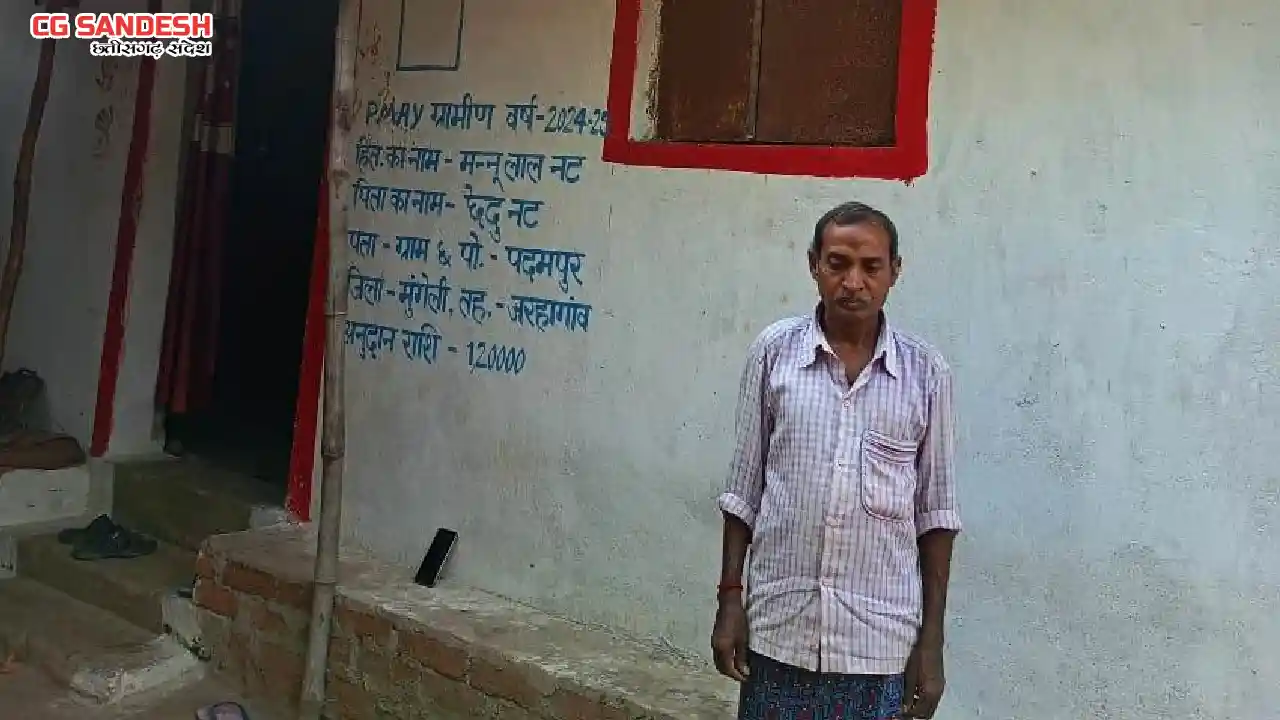 CG SANDESH
छत्तीसगढ़ संदेश
P.MAY ग्रामीण वर्ष-2024-25
हित. का नाम - मन्नू लाल नट
पिता का नाम - छेदु नट
पता - ग्राम & पो. - पदमपुर
जिला - मुंगेली, तह. - जरहागांव
अनुदान राशि - 120000